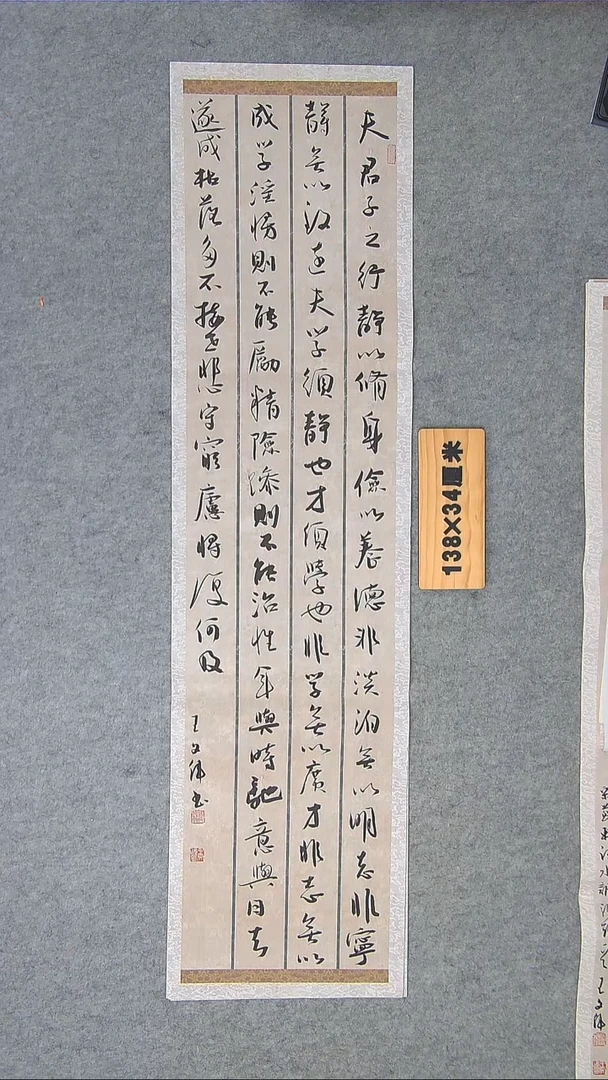 夫君子之行靜以脩身儉以養德非淡泊無以明志非寧
靜無以致遠夫學須靜也才須學也非學無以廣才非志無以
成學淫慢則不能勵精險躁則不能治性年與時馳意與日去
遂成枯落多不接世悲守窮廬將復何及
王文偉书
138×34厘米
王文偉